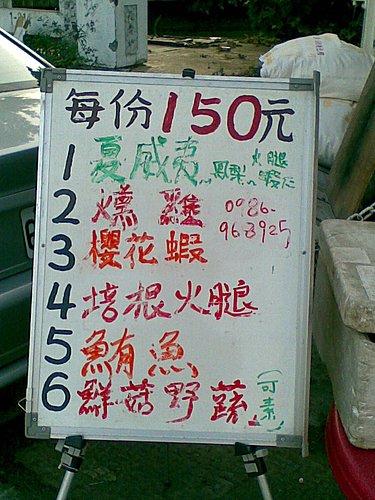 每份150元
1 夏威夷 鳳梨、火腿、蝦仁
2 燻雞
0986-
968925
3 櫻花蝦
4 培根火腿
5 鮪魚
6 鮮菇野蔬(可素)